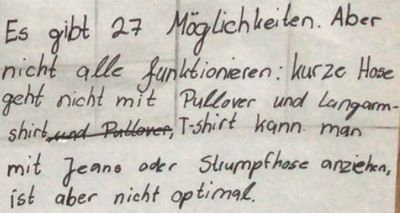 Es gibt 27 Möglichkeiten. Aber
nicht alle funktionieren: kurze Hose
geht nicht mit Pullover und Langarm-
shirt und Pullover, T-shirt kann man
mit Jeans oder Strumpfhose anziehen,
ist aber nicht optimal.